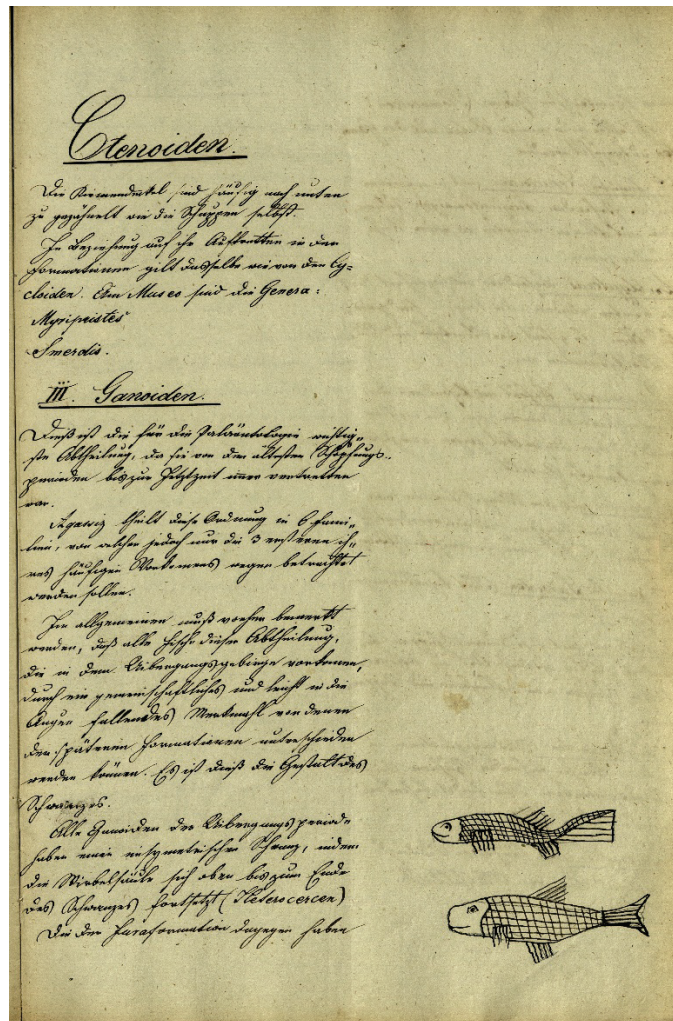 Ctenoiden.
Die Kiemendeckel sind häufig nach unten
zu gezähnelt wie die Schuppen selbst.
In Beziehung auf ihr Auftretten in den
Formationen gilt dasselbe wie von den Cy-
cloiden. Im Museo sind die Genera:
Myripristes
Smerdis.
III. Ganoiden.
Dieß ist die für die Paläontologie wichtig-
ste Abtheilung, da sie von den ältesten Schöpfungs-
perioden bis zur Jetztzeit immer vertretten
war.
Agassiz theilt diese Ordnung in 6 Fami-
lien, von welchen jedoch nur die 3 ersteren ih-
res häufigen Vorkomens wegen betrachtet
werden sollen.
Im allgemeinen muß vorher bemerkt
werden, daß alle Fische dieser Abtheilung,
die in dem Uibergangsgebirge vorkomen,
durch ein gemeinschaftliches und leicht in die
Augen fallendes Merkmahl von denen
der späteren Formationen unterschieden
werden können. Es ist dieß die Gestalt des
Schwanzes.
Alle Ganoiden der Uibergangsperiode
haben einen unsymetrischen Schwanz, indem
die Wirbelsäule sich oben bis zum Ende
des Schwanzes fortsetzt (Heterocercen)
Die der Juraformation dagegen haben